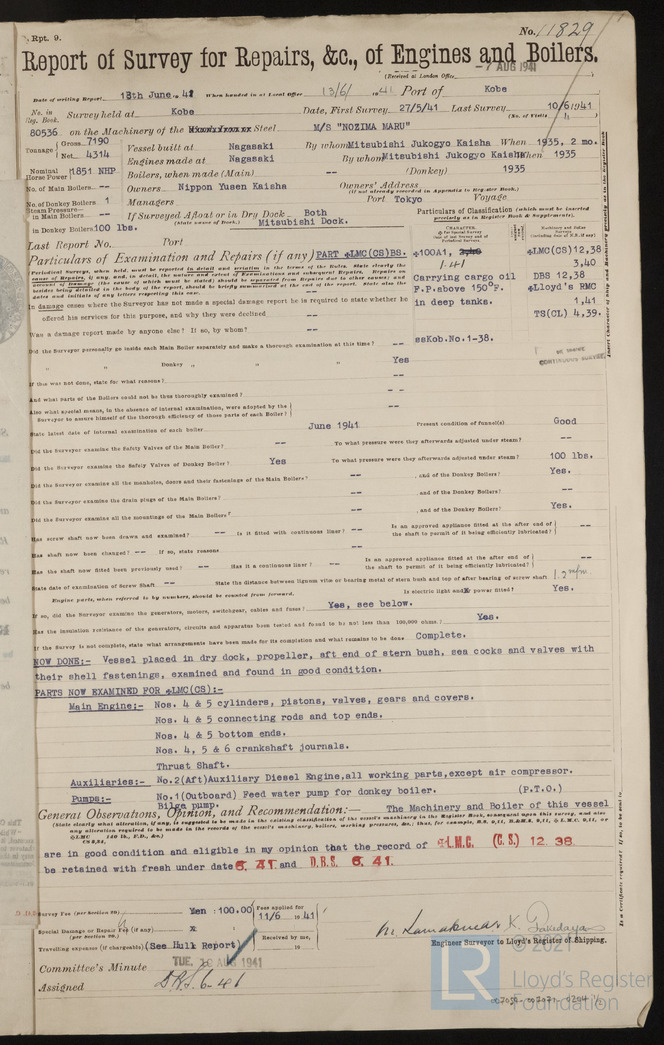 Rpt. 9.
No. 11829
Report of Survey for Repairs, &c., of Engines and Boilers.
(Received at London Office
-7 AUG 1941
Date of writing Report 13th June. 41 When handed in at Local Office 13/6/ 1941 Port of Kobe
No. in Reg. Book. Survey held at Kobe Date, First Survey 27/5/41 Last Survey 10/6 1941
(No. of Visits 4 )
80536 on the Machinery of the Steel M/S "NOZIMA MARU"
Tonnage Gross 7190
Net 4314
Vessel built at Nagasaki By whom Mitsubishi Jukogyo Kaisha When 1935, 2 mo.
Engines made at Nagasaki By whom Mitsubishi Jukogyo Kaisha When 1935
Nominal Horse Power 1851 NHP Boilers, when made (Main) -- (Donkey) 1935
No. of Main Boilers -- Owners Nippon Yusen Kaisha Owners' Address
(If not already recorded in Appendix to Register Book.)
No. of Donkey Boilers 1 Managers Port Tokyo Voyage
Steam Pressure— in Main Boilers --
in Donkey Boilers 100 lbs.
If Surveyed Afloat or in Dry Dock Both
(State name of Dock.) Mitsubishi Dock.
Particulars of Classification (which must be inserted precisely as in Register Book & Supplements).
Last Report No. Port
Particulars of Examination and Repairs (if any) PART ✠LMC(CS)BS.
✠100A1,
1.41
Carrying cargo oil
F.P.above 150°F.
in deep tanks.
ssKob.No.1-38.
✠LMC(CS)12,38
3,40
DBS 12,38
✠Lloyd's RMC
1,41
TS(CL) 4,39.
In damage cases where the Surveyor has not made a special damage report he is required to state whether he
offered his services for this purpose, and why they were declined --
Was a damage report made by anyone else? If so, by whom? --
Did the Surveyor personally go inside each Main Boiler separately and make a thorough examination at this time? --
" " Donkey " " " " Yes
If this was not done, state for what reasons? --
And what parts of the Boilers could not be thus thoroughly examined? --
Also what special means, in the absence of internal examination, were adopted by the
Surveyor to assure himself of the thorough efficiency of those parts of each Boiler? --
State latest date of internal examination of each boiler June 1941 Present condition of funnel(s) Good
Did the Surveyor examine the Safety Valves of the Main Boiler? -- To what pressure were they afterwards adjusted under steam? --
Did the Surveyor examine the Safety Valves of Donkey Boiler? Yes To what pressure were they afterwards adjusted under steam? 100 lbs.
Did the Surveyor examine all the manholes, doors and their fastenings of the Main Boilers? -- , and of the Donkey Boilers? Yes.
Did the Surveyor examine the drain plugs of the Main Boilers? -- , and of the Donkey Boilers? --
Did the Surveyor examine all the mountings of the Main Boilers? -- , and of the Donkey Boilers? Yes.
Has screw shaft now been drawn and examined? -- Is it fitted with continuous liner? -- Is an approved appliance fitted at the after end of the shaft to permit of it being efficiently lubricated? --
Has shaft now been changed? -- If so, state reasons --
Has the shaft now fitted been previously used? -- Has it a continuous liner? -- Is an approved appliance fitted at the after end of the shaft to permit of it being efficiently lubricated? --
State date of examination of Screw Shaft -- State the distance between lignum vitæ or bearing metal of stern bush and top of after bearing of screw shaft 1.2 m/m
Engine parts, when referred to by numbers, should be counted from forward. Is electric light and power fitted? Yes.
If so, did the Surveyor examine the generators, motors, switchgear, cables and fuses? Yes, see below.
Has the insulation resistance of the generators, circuits and apparatus been tested and found to be not less than 100,000 ohms.? Yes.
If the Survey is not complete, state what arrangements have been made for its completion and what remains to be done Complete.
NOW DONE:- Vessel placed in dry dock, propeller, aft end of stern bush, sea cocks and valves with
their shell fastenings, examined and found in good condition.
PARTS NOW EXAMINED FOR ✠LMC(CS):-
Main Engine:- Nos. 4 & 5 cylinders, pistons, valves, gears and covers.
Nos. 4 & 5 connecting rods and top ends.
Nos. 4 & 5 bottom ends.
Nos. 4, 5 & 6 crankshaft journals.
Thrust Shaft.
Auxiliaries:- No.2(Aft)Auxiliary Diesel Engine,all working parts,except air compressor.
Pumps:- No.1(Outboard) Feed water pump for donkey boiler. (P.T.O.)
Bilge pump.
General Observations, Opinion, and Recommendation:— The Machinery and Boiler of this vessel
are in good condition and eligible in my opinion that the record of ✠L.M.C. (C.S.) 12. 38.
be retained with fresh under date 6. 41 and D.B.S. 6. 41.
Survey Fee (per Section 29) Yen :100.00
Special Damage or Repair Fee (if any)
(per Section 29.)
Travelling expenses (if chargeable) (See Hull Report)
Fees applied for
11/6 1941
Received by me,
19
Engineer Surveyor to Lloyd's Register of Shipping.
Committee's Minute TUE. AUG 1941
Assigned DBS. 6-41
© 2021
LR
Lloyd's Register
Foundation